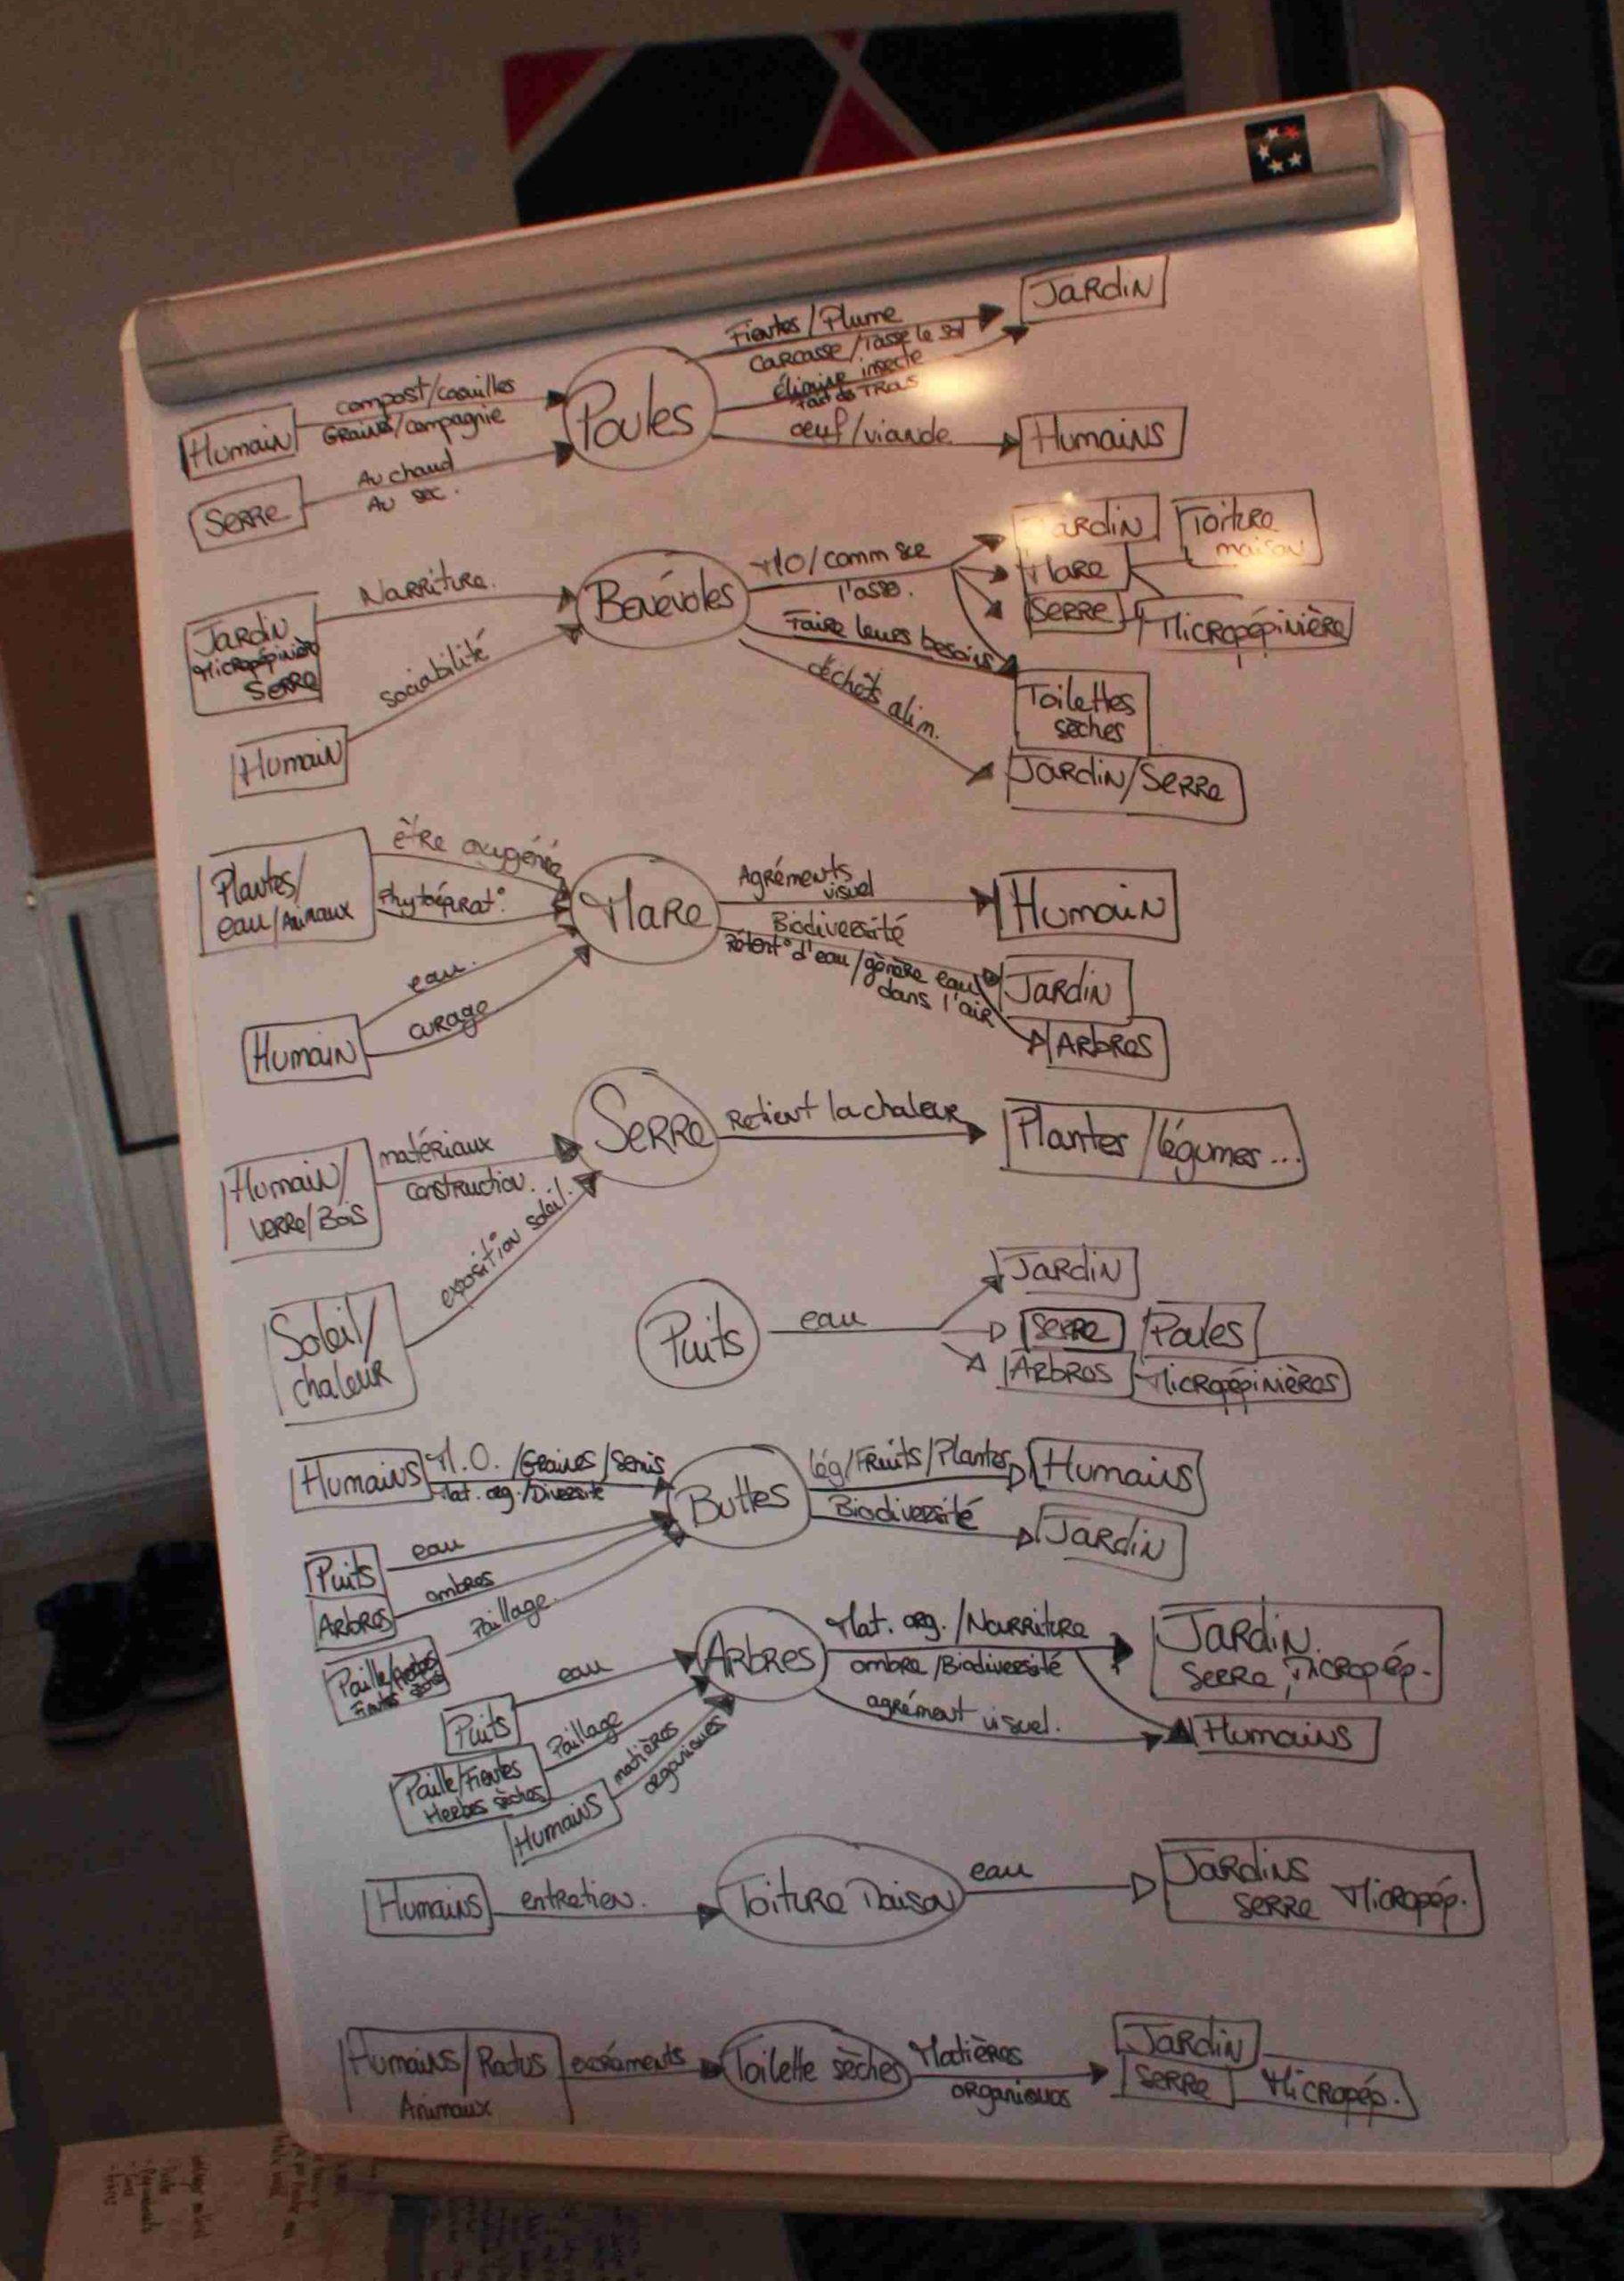 Jardin
Fientes/Plume
Carcasse/Tasse le sol
élimine insecte
fait des trous
compost/coquilles
Graines/compagnie
Poules
Humain
oeuf/viande
Humains
Au chaud
Au sec.
Serre
Jardin
Toiture
maison
MO/comm sur
l'asso.
Mare
Bénévoles
Nourriture.
Serre
Micropépinière
Jardin
Micropépinière
Serre
Faire leurs besoins
sociabilité
Toilettes
sèches
déchêts alim.
Humain
Jardin/Serre
être oxygénée
Plantes/
eau/Animaux
Phytoépurat°
Mare
Agréments
visuel
Humain
Biodiversité
Rétent° d'eau/génère eau
dans l'air
Jardin
Arbres
eau.
curage
Humain
Serre
Retient la chaleur
Plantes/légumes...
matériaux
construction.
Humain/
verre/Bois
exposition soleil.
Soleil/
chaleur
Jardin
Puits
eau
Serre
Poules
Arbres
Micropépinières
Humains
M.O./Graines/Semis
Mat. org./Diversité
Buttes
lég/Fruits/Plantes
Humains
Biodiversité
Jardin
Puits
eau
Arbres
ombres
Paillage.
Paille/
Arbres
Mat. org./Nourriture
ombre/Biodiversité
Jardin.
Serre, Micropép.
agrément visuel.
Humains
eau
Puits
Paillage
Paille/Fientes
Herbes sèches
matières
organiques
Humains
Humains
entretien.
Toiture Maison
eau
Jardins
Serre Micropép.
Humains/Radus
Animaux
excréments
Toilette sèches
Matières
organiques
Jardin
Serre
Micropép.